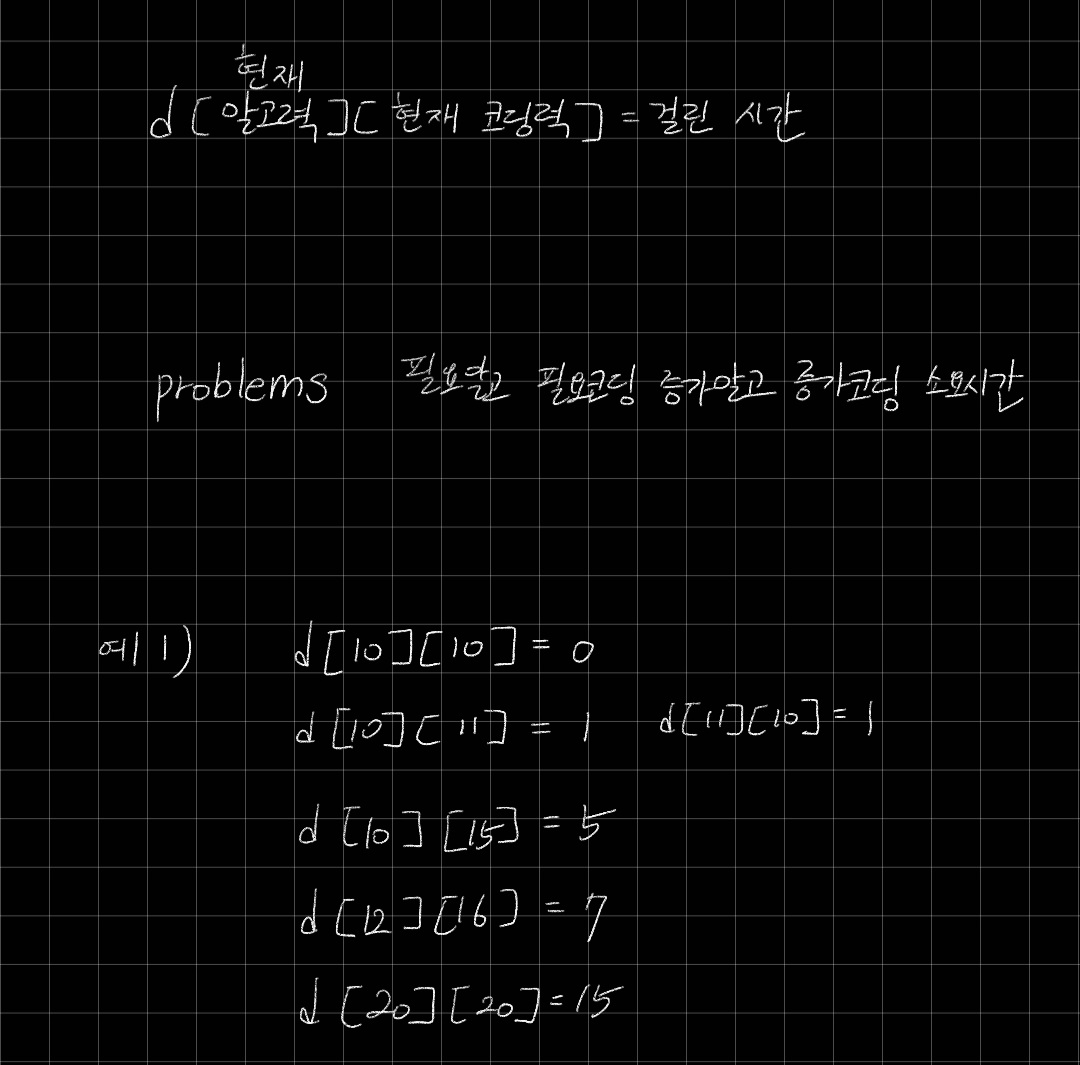 현재
d [ 알고력 ] [ 현재 코딩력 ] = 걸린 시간
problems 필요알고 필요코딩 증가알고 증가코딩 소요시간
예 1) d [10] [10] = 0
d [10] [11] = 1 d[11][10] = 1
d [10] [15] = 5
d [12] [16] = 7
d [20] [20] = 15